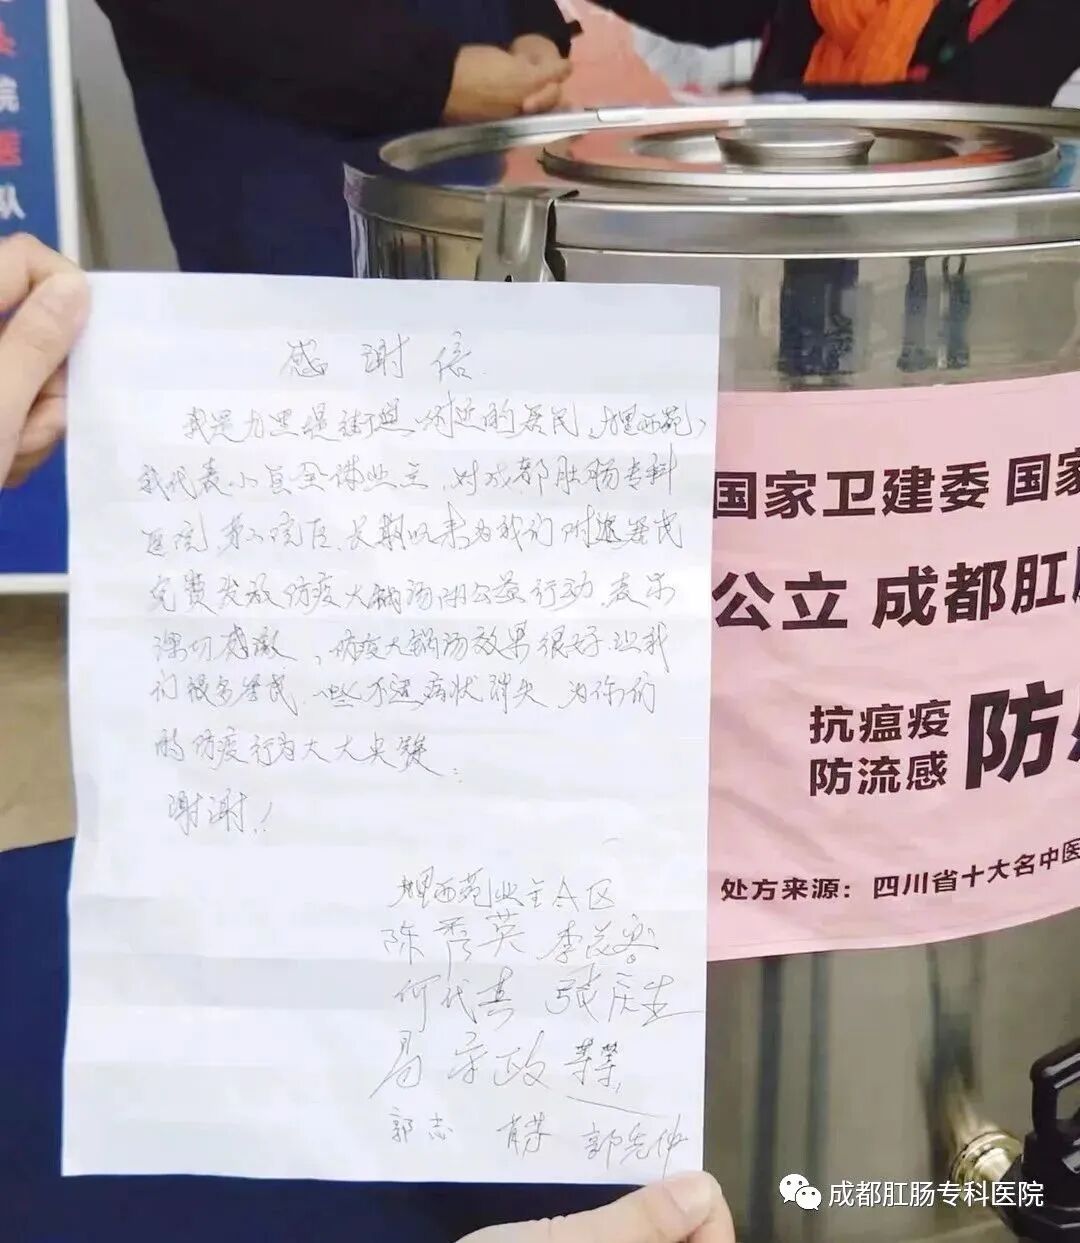 头
院
医
队
感谢信
我是九里堤街道附近的居民，九里西苑，
我代表小区全体业主，对成都肛肠专科
医院第二院区、长期以来为我们附近居民
免费发放防疫大锅汤的公益行动，表示
深切感激，防疫大锅汤效果很好，让我
们很多居民，一些不适病状消失，为你们
的防疫行为大大点赞；
谢谢！
九里西苑业主A区
陈秀英 李
何代真 张庆生
易宗政 等等
郭志 肖芳 郭
国家卫建委 国家
公立 成都肛肠
抗瘟疫
防流感
防感
处方来源：四川省十大名中医
成都肛肠专科医院